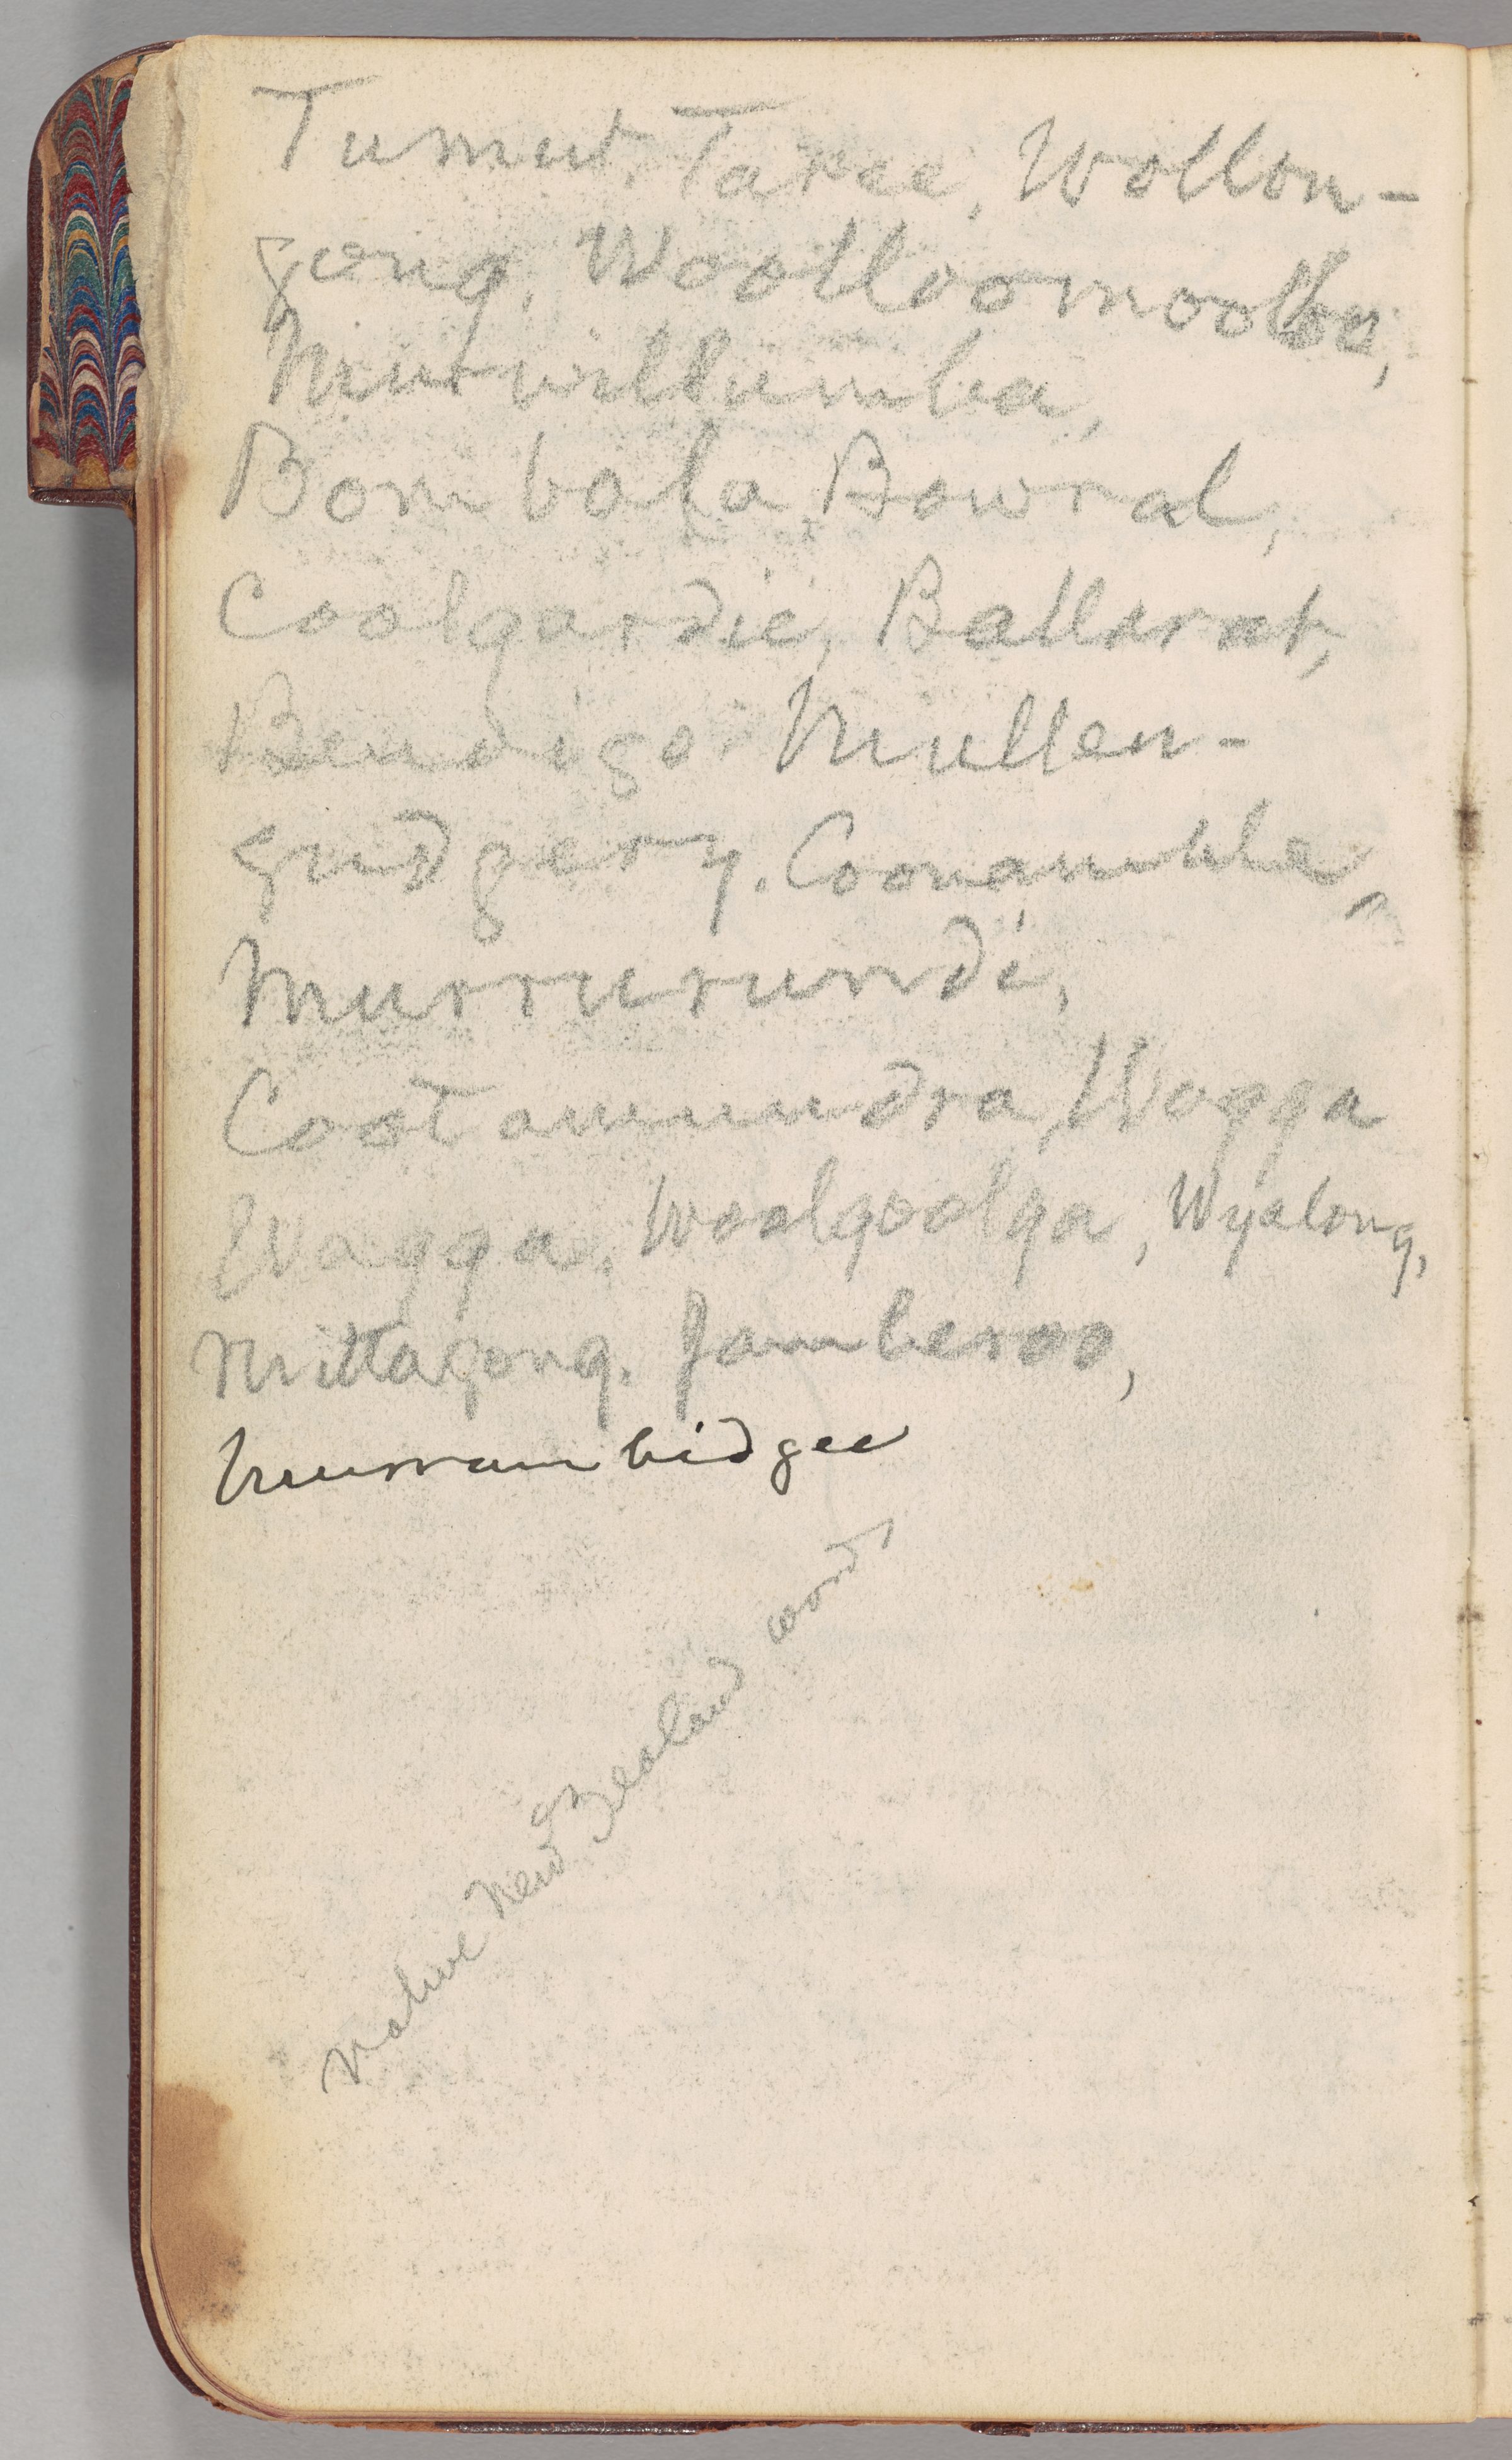 Tumut, Taree, Wollon-
gong, Woolloomoolloo,
Murwillumba,
Bombala, Bowral,
Coolgardie, Ballarat,
Bendigo. Mullen-
gudgery. Coonamble,
Murrurundi,
Cootamundra, Wagga
Wagga, Woolgoolga, Wyalong,
Mittagong. Jamberoo,
Murrambidgee
Native New Zealand words